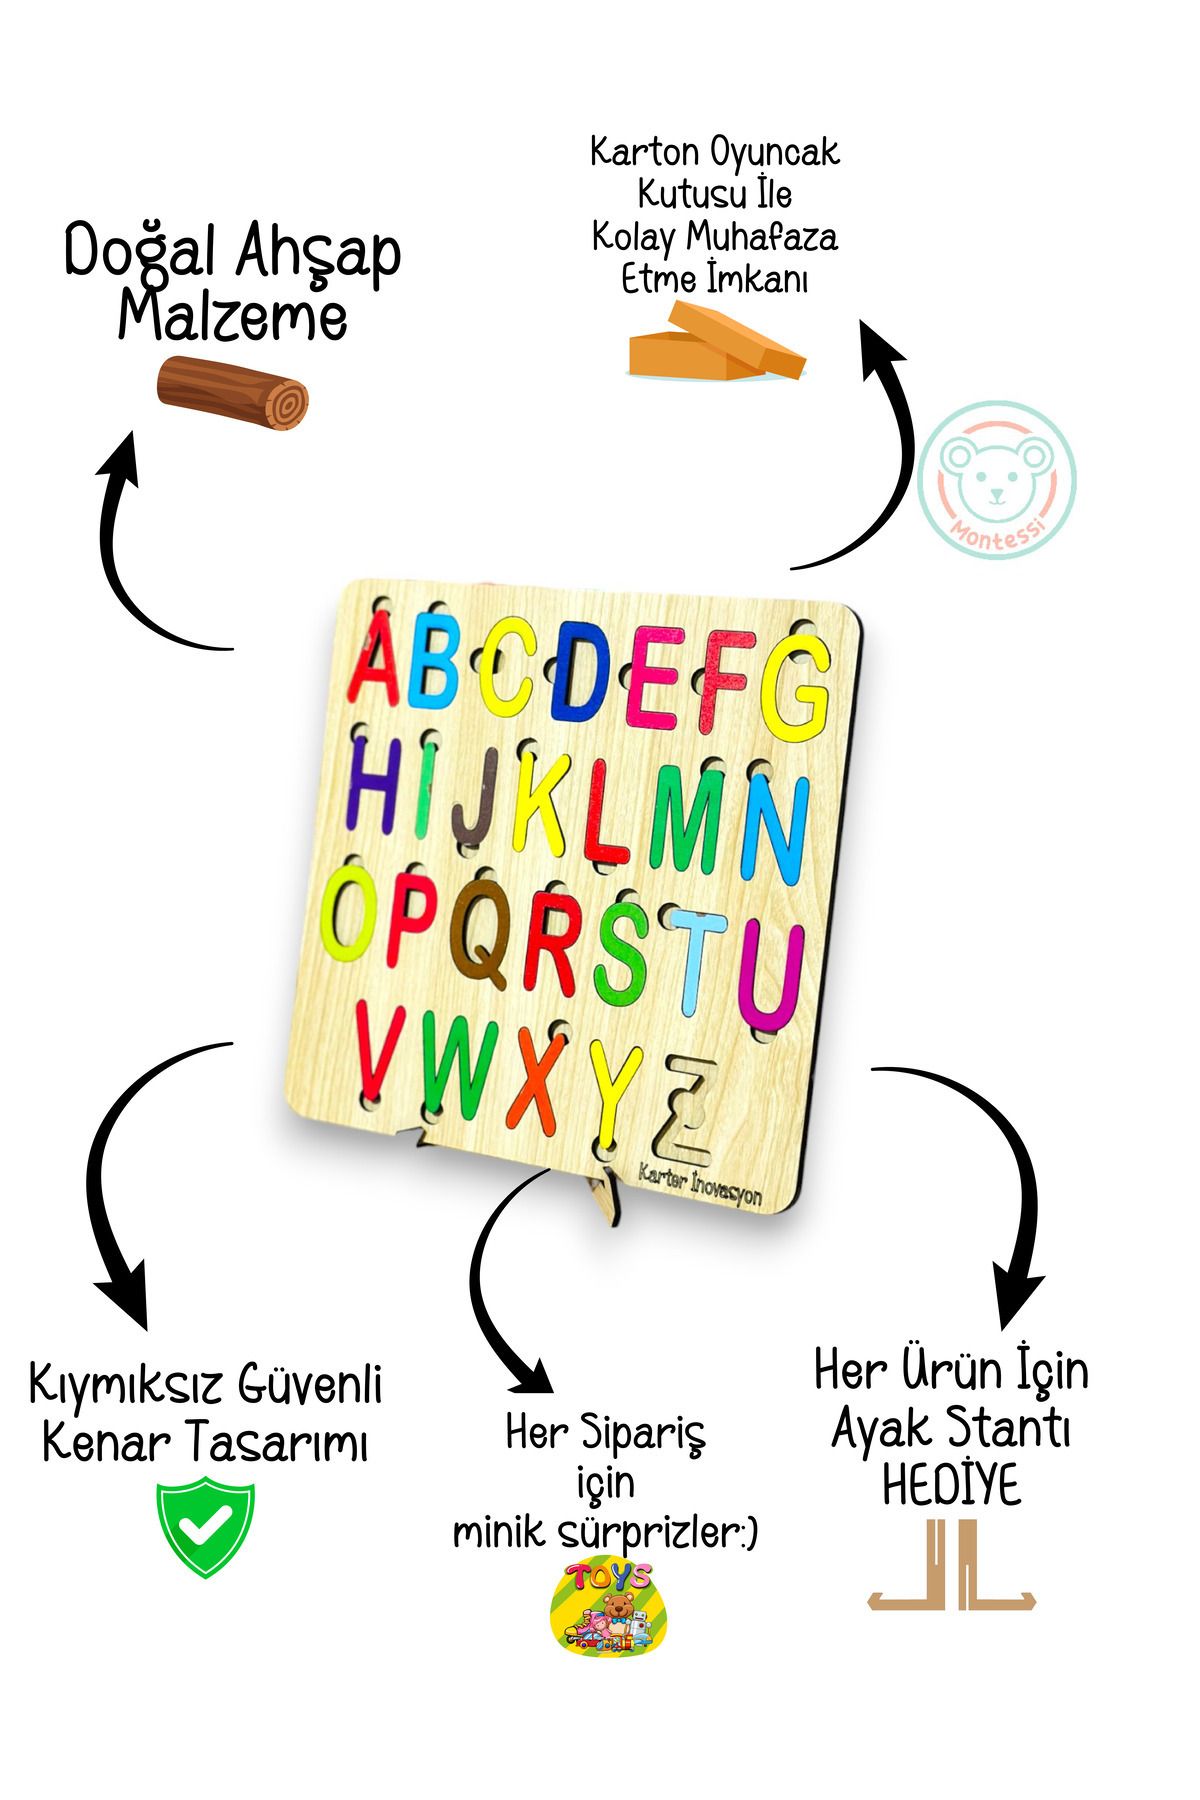 Karton Oyuncak
Kutusu İle
Kolay Muhafaza
Etme İmkanı
Doğal Ahşap
Malzeme
Montessi
A B C D E F G
H I J K L M N
O P Q R S T U
V W X Y Z
Karter İnovasyon
Kıymıksız Güvenli
Kenar Tasarımı
Her Sipariş
için
minik sürprizler:)
TOYS
Her Ürün İçin
Ayak Stantı
HEDİYE